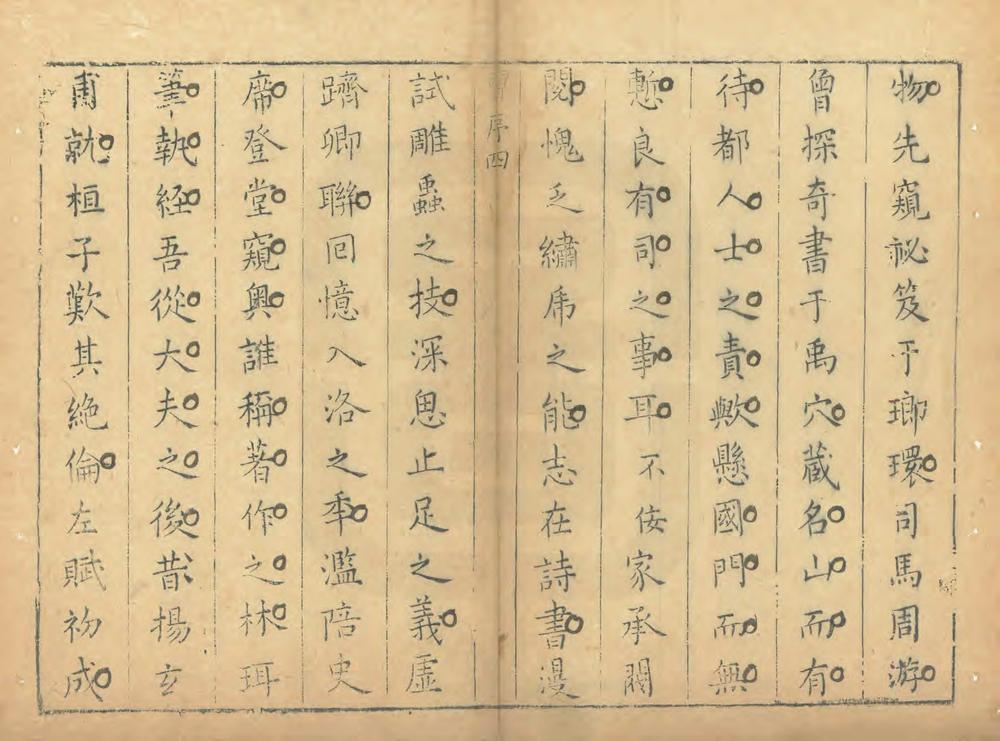 物先窺祕笈于瑯環司馬周游
曾探奇書于禹穴藏名山而有
待都人士之責歟懸國門而無
慙良有司之事耳不佞家承閥
閱愧乏繡虎之能志在詩書漫
序四
試雕蟲之技深思止足之義虛
躋卿聯回憶入洛之秊濫陪史
席登堂窺奧誰稱著作之林珥
筆執經吾從大夫之後昔揚玄
甫就桓子歎其絶倫左賦初成